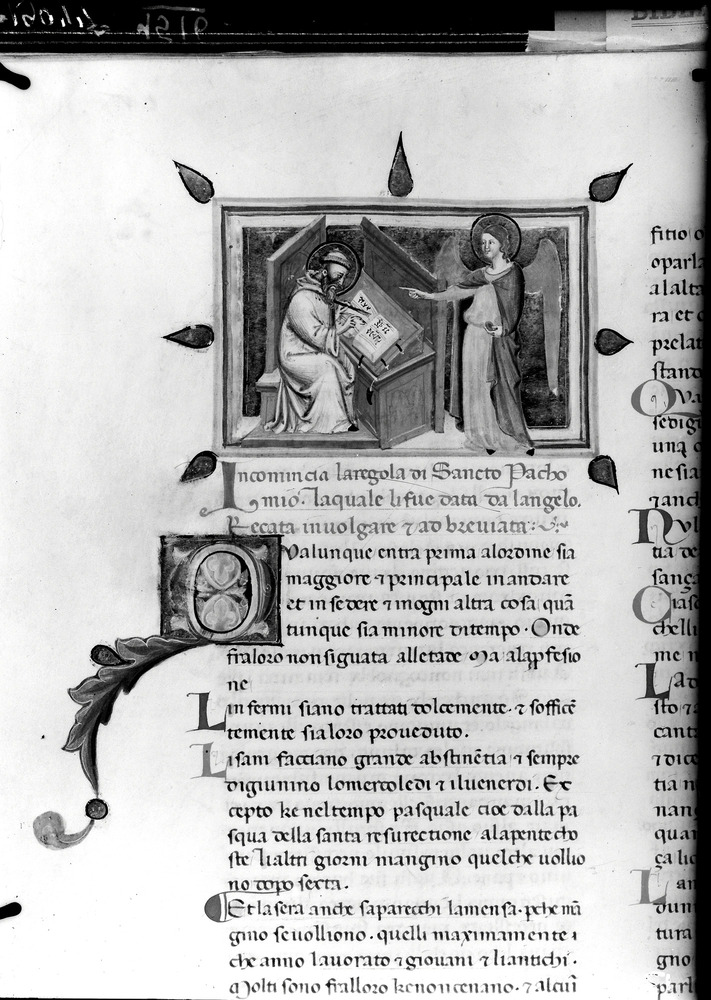 Incomincia laregola di Sancto Pacho
mio. laquale lifue data da langelo.
Recata involgare ⁊ ad breviata:
Qvalunque entra prima alordine sia
maggiore ⁊ principale in andare
et in sedere ⁊ inogni altra cosa quã
tunque sia minore ditempo. Onde
fraloro nonsiguata alletade Ma alapfesio
ne
Linfermi siano trattati dolcemente. ⁊ sofficẽ
temente sialoro proveduto.
Lisani facciano grande abstinẽtia ⁊ sempre
digiunino lomercoledi ⁊ iluenerdi. Ex
cepto ke neltempo pasquale cioe dalla pa
squa della santa resurectione alapenteco
ste lialtri giorni mangino quelche uollio
no dopo sexta.
Et lasera anche saparecchi lamensa. pche mã
gino seuolliono. quelli maximamente
che anno lauorato ⁊ giovani ⁊ liantichi.
Molti sono fralloro kenoncenano. ⁊ alcuñ
fitio
oparla
alalta
ra et
prelat
stand
Qva
sedig
una
nesia
⁊ancl
tia de
sança
Ciasc
chelli
me n
Lad
sto ⁊
cant
⁊ dice
tia n
nan
quan
ça lic
Lan
dun
tura
gno
parl